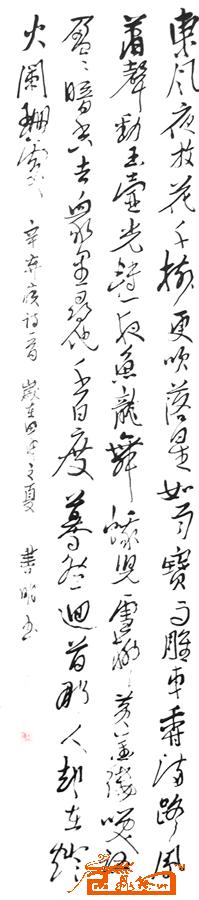 東风夜放花千樹更吹落星如雨寳马雕車香满路风
萧聲動玉壺光轉一夜魚龍舞蛾兒雪柳黄金缕笑语
盈盈暗香去衆里尋他千百度蓦然迴首那人却在燈
火阑珊處 辛弃疾诗一首 歲在甲午之夏 書